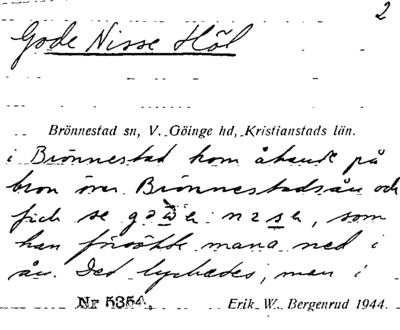 2
Gode Nisse Höl
Brönnestad sn, V. Göinge hd, Kristianstads län.
i Brönnestad kom åkande på
bron över Brönnestadsån och
fick se
som
han försökte mana ned i
ån. Det lyckades, men i
Nr 5354. Erik W. Bergenrud 1944.